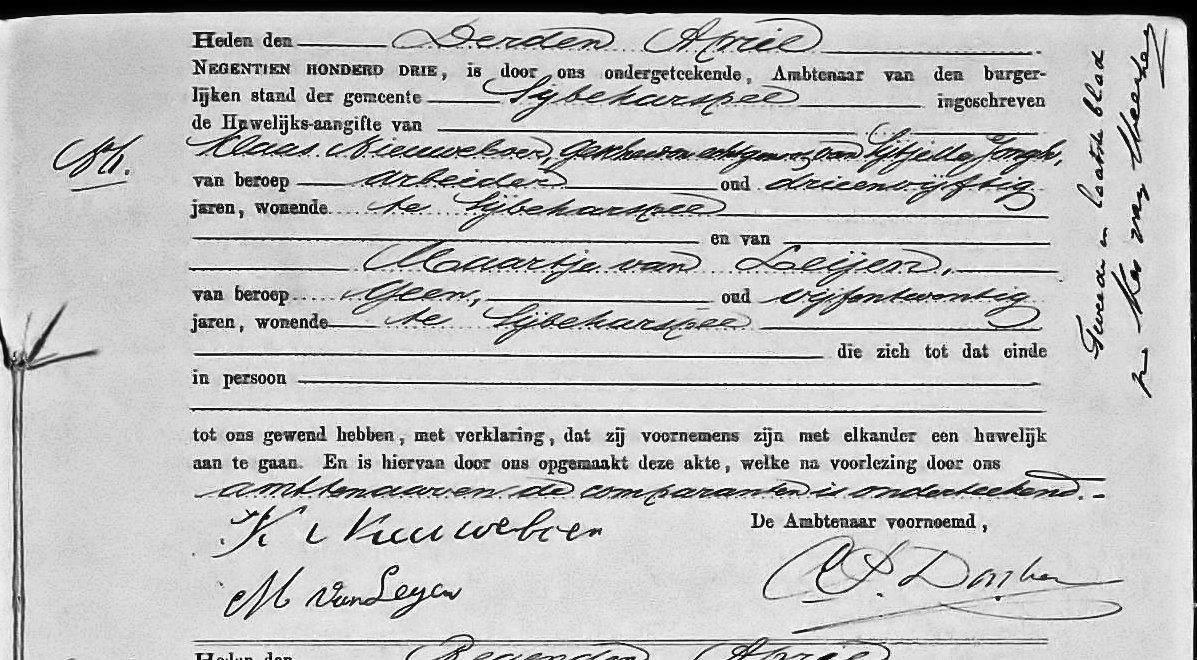 Heden den Derden April
NEGENTIEN HONDERD DRIE, is door ons ondergeteekende, Ambtenaar van den burger-
lijken stand der gemeente Sijbekarspel ingeschreven
de Huwelijks-aangifte van
Klaas Nieuweboer, gescheiden echtgenoot van Sijtje Jongh,
van beroep arbeider oud drieenvijftig
jaren, wonende te Sijbekarspel
en van
Maartje van Leijen,
van beroep Geen, oud vijfentwintig
jaren, wonende te Sijbekarspel
die zich tot dat einde
in persoon
tot ons gewend hebben, met verklaring, dat zij voornemens zijn met elkander een huwelijk
aan te gaan. En is hiervan door ons opgemaakt deze akte, welke na voorlezing door ons
ambtenaar en de comparanten is onderteekend.-
De Ambtenaar voornoemd,
K Nieuweboer
M van Leyen
Tweede en laatste blad
Heden den Negenden April